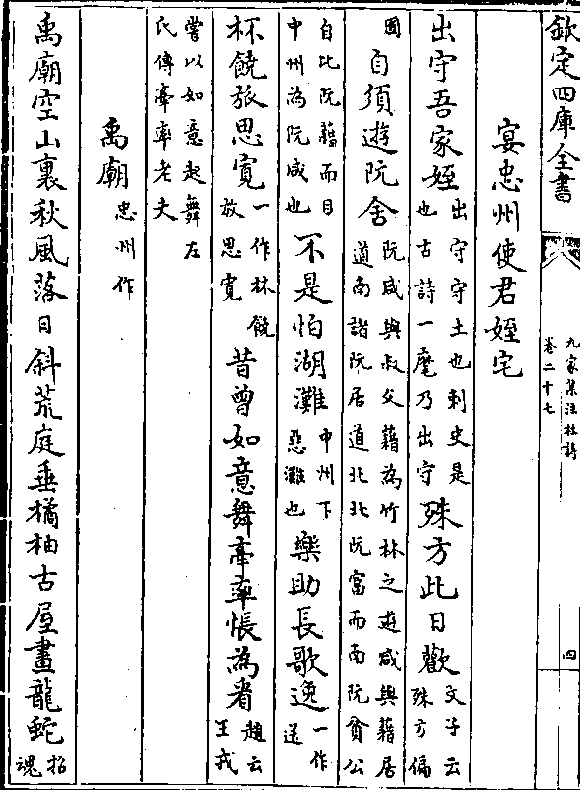 欽定四庫全書
九家集注杜詩
卷二十七
四
宴忠州使君姪宅
出守吾家姪出守守土也刺史是也古詩一麾乃出守殊方此日歡文子云殊方偏
國自須遊阮舍阮咸與叔父藉為竹林之遊咸與藉居道南諸阮居道北北阮富而南阮貧公
自比阮藉而目中州為阮咸也不是怕湖灘中州下惡灘也樂助長歌逸一作送
杯饒旅思寛一作林饒放思寛昔曾如意舞牽率悵為看趙云王戎
嘗以如意起舞左氏傳牽率老夫
禹廟忠州作
禹廟空山裏秋風落日斜荒庭垂橘柚古屋畫龍蛇招魂